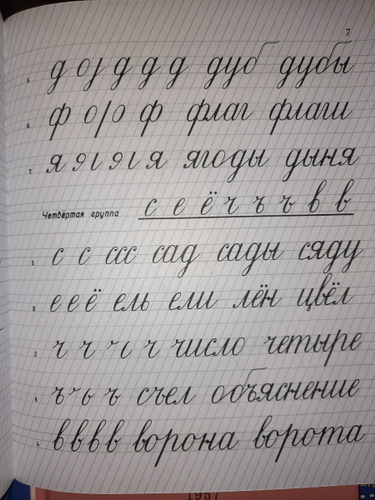 7
5. д о ȷ д д д дуб дубы
6. ф о ȷ о ф флаг флаги
7. я э ι э ι я ягоды дыня
Четвёртая группа с е ё ч ъ ъ в в
1. с с ссс сад сады сяду
2. е е ё ель ели лён цвёл
3. ч ч ч ч число четыре
4. ъ ь ъ съел объяснение
5. в в в в ворона ворота
1957